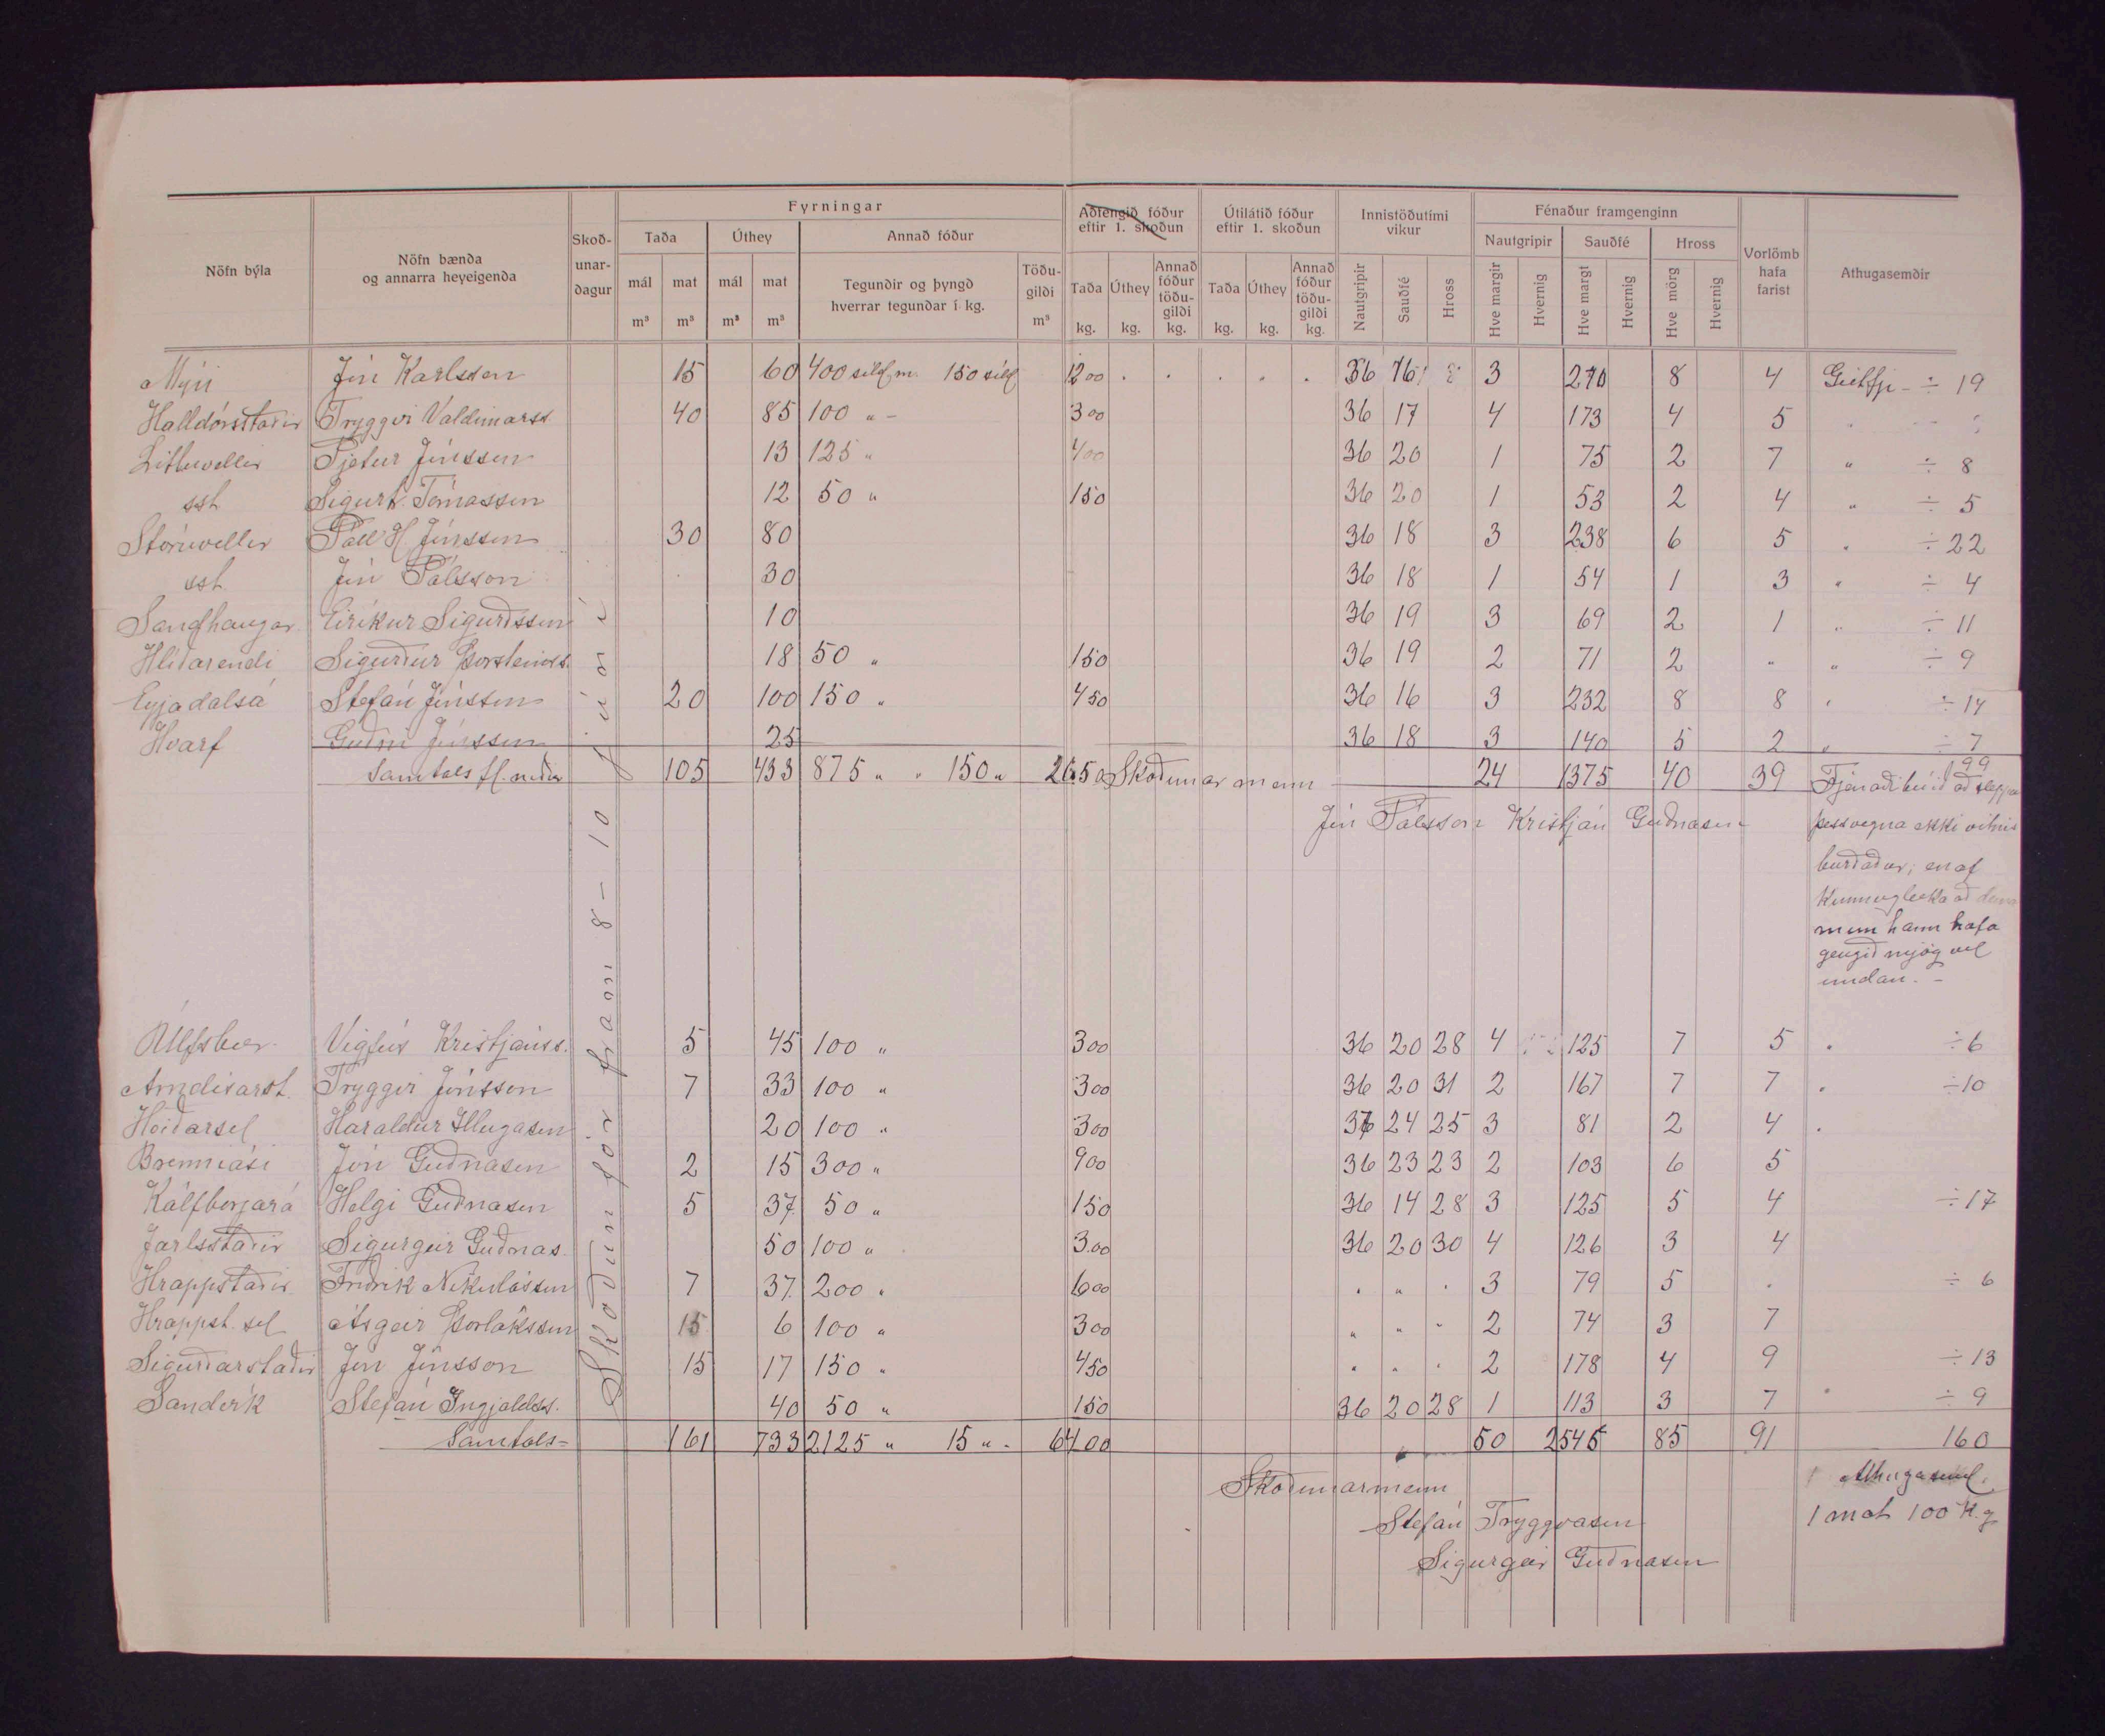 Nöfn býla
Nöfn bænda og annarra heyeigenda
Skoðunardagur
Fyrningar
Taða
mál m³
mat m³
Úthey
mál m³
mat m³
Annað fóður
Tegundir og þyngd hverrar tegundar í kg.
Töðugildi m³
Aðfengið fóður eftir 1. skoðun
Taða kg.
Úthey kg.
Annað fóður töðugildi kg.
Útilátið fóður eftir 1. skoðun
Taða kg.
Úthey kg.
Annað fóður töðugildi kg.
Innistöðutími vikur
Nautgripir
Sauðfé
Hross
Fénaður framgenginn
Nautgripir
Hve margir
Hvernig
Sauðfé
Hve margt
Hvernig
Hross
Hve mörg
Hvernig
Vorlömb hafa farist
Athugasemdir
Mýri Jón Karlsson 15 60 400 síld.m. 150 síld 1200 36 16 3 270 8 4 Geitfje ÷ 19
Halldórsstaðir Tryggvi Valdimarss 40 85 100 „ - 300 36 17 4 173 4 5
Litluvellir Pjetur Jónsson 13 125 „ 400 36 20 1 75 2 7 „ ÷ 8
sst. Sigurð. Tómasson 12 50 „ 150 36 20 1 53 2 4 „ ÷ 5
Stóruvellir Páll H. Jónsson 30 80 36 18 3 238 6 5 „ ÷ 22
sst. Jón Pálsson 30 36 18 1 54 1 3 „ ÷ 4
Sandhaugar Eiríkur Sigurðsson 10 36 19 3 69 2 1 „ ÷ 11
Hlíðarendi Sigurður Þorsteinss. 18 50 „ 150 36 19 2 71 2 „ „ ÷ 9
Eyjadalsá Stefán Jónsson 20 100 150 „ 450 36 16 3 232 8 8 „ ÷ 14
Hvarf Guðni Jónsson 25 36 18 3 140 5 2 „ ÷ 7
Samtals fl. neðar 105 433 875 „ „ 150 „ 2650 Skoðunarmenn 24 1375 40 39 199
Jón Pálsson Kristján Guðnason
Fjenað búið að sleppa
þessvegna ekki vitnis
burðaður; en af
kunnugleika að dæma
mun hann hafa
gengið mjög vel
undan. -
Skoðun fór fram 8 - 10 júní
Úlfsbær Vigfús Kristjánss. 5 45 100 „ 300 36 20 28 4 125 7 5 „ ÷ 6
Arndísarst. Tryggvi Jónsson 7 33 100 „ 300 36 20 31 2 167 7 7 „ ÷ 10
Heiðarsel Haraldur Illugason 20 100 „ 300 36 24 25 3 81 2 4 „
Brenniási Jón Guðnason 2 15 300 „ 900 36 23 23 2 103 6 5
Kálfborgará Helgi Guðnason 5 37 50 „ 150 36 14 28 3 125 5 4 ÷ 17
Jarlsstaðir Sigurgeir Guðnas. 50 100 „ 300 36 20 30 4 126 3 4
Hrappstaðir Friðrik Nikulásson 7 37 200 „ 600 „ „ „ 3 79 5 „ ÷ 6
Hrappst. sel Ásgeir Þorláksson 15 6 100 „ 300 „ „ „ 2 74 3 7
Sigurðarstaðir Jón Jónsson 15 17 150 „ 450 „ „ „ 2 178 4 9 ÷ 13
Sandvík Stefán Ingjaldss. 40 50 „ 150 36 20 28 1 113 3 7 „ ÷ 9
Samtals = 161 733 2125 „ 15 „ - 6400 50 2545 85 91 160
Skoðunarmenn
Stefán Tryggvason
Sigurgeir Guðnason
Athugasemd.
1 mat 100 K.g